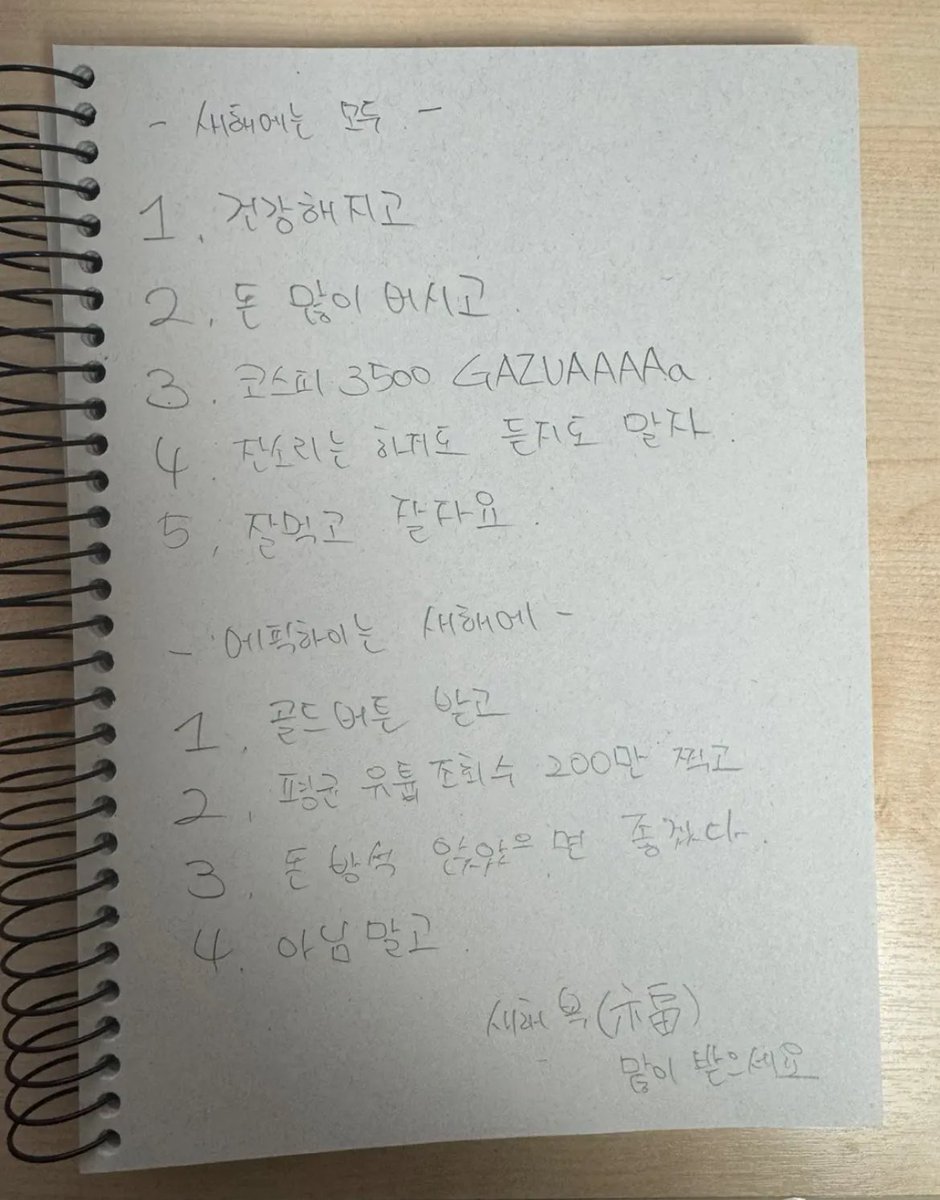 - 새해에는 모두 -
1. 건강해지고
2. 돈 많이 버시고.
3. 코스피 3500 GAZUAAAAa
4. 잔소리는 하지도 듣지도 말자.
5. 잘먹고 잘자요.
- 에픽하이는 새해에 -
1. 골드버튼 받고
2. 평균 유튭 조회수 200만 찍고
3. 돈 방석 앉았으면 좋겠다.
4. 아님말고.
새해 복(福)
많이 받으세요